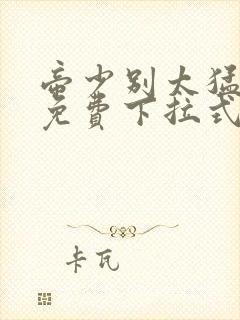 帝少别太猛
免費下拉式
卡瓦